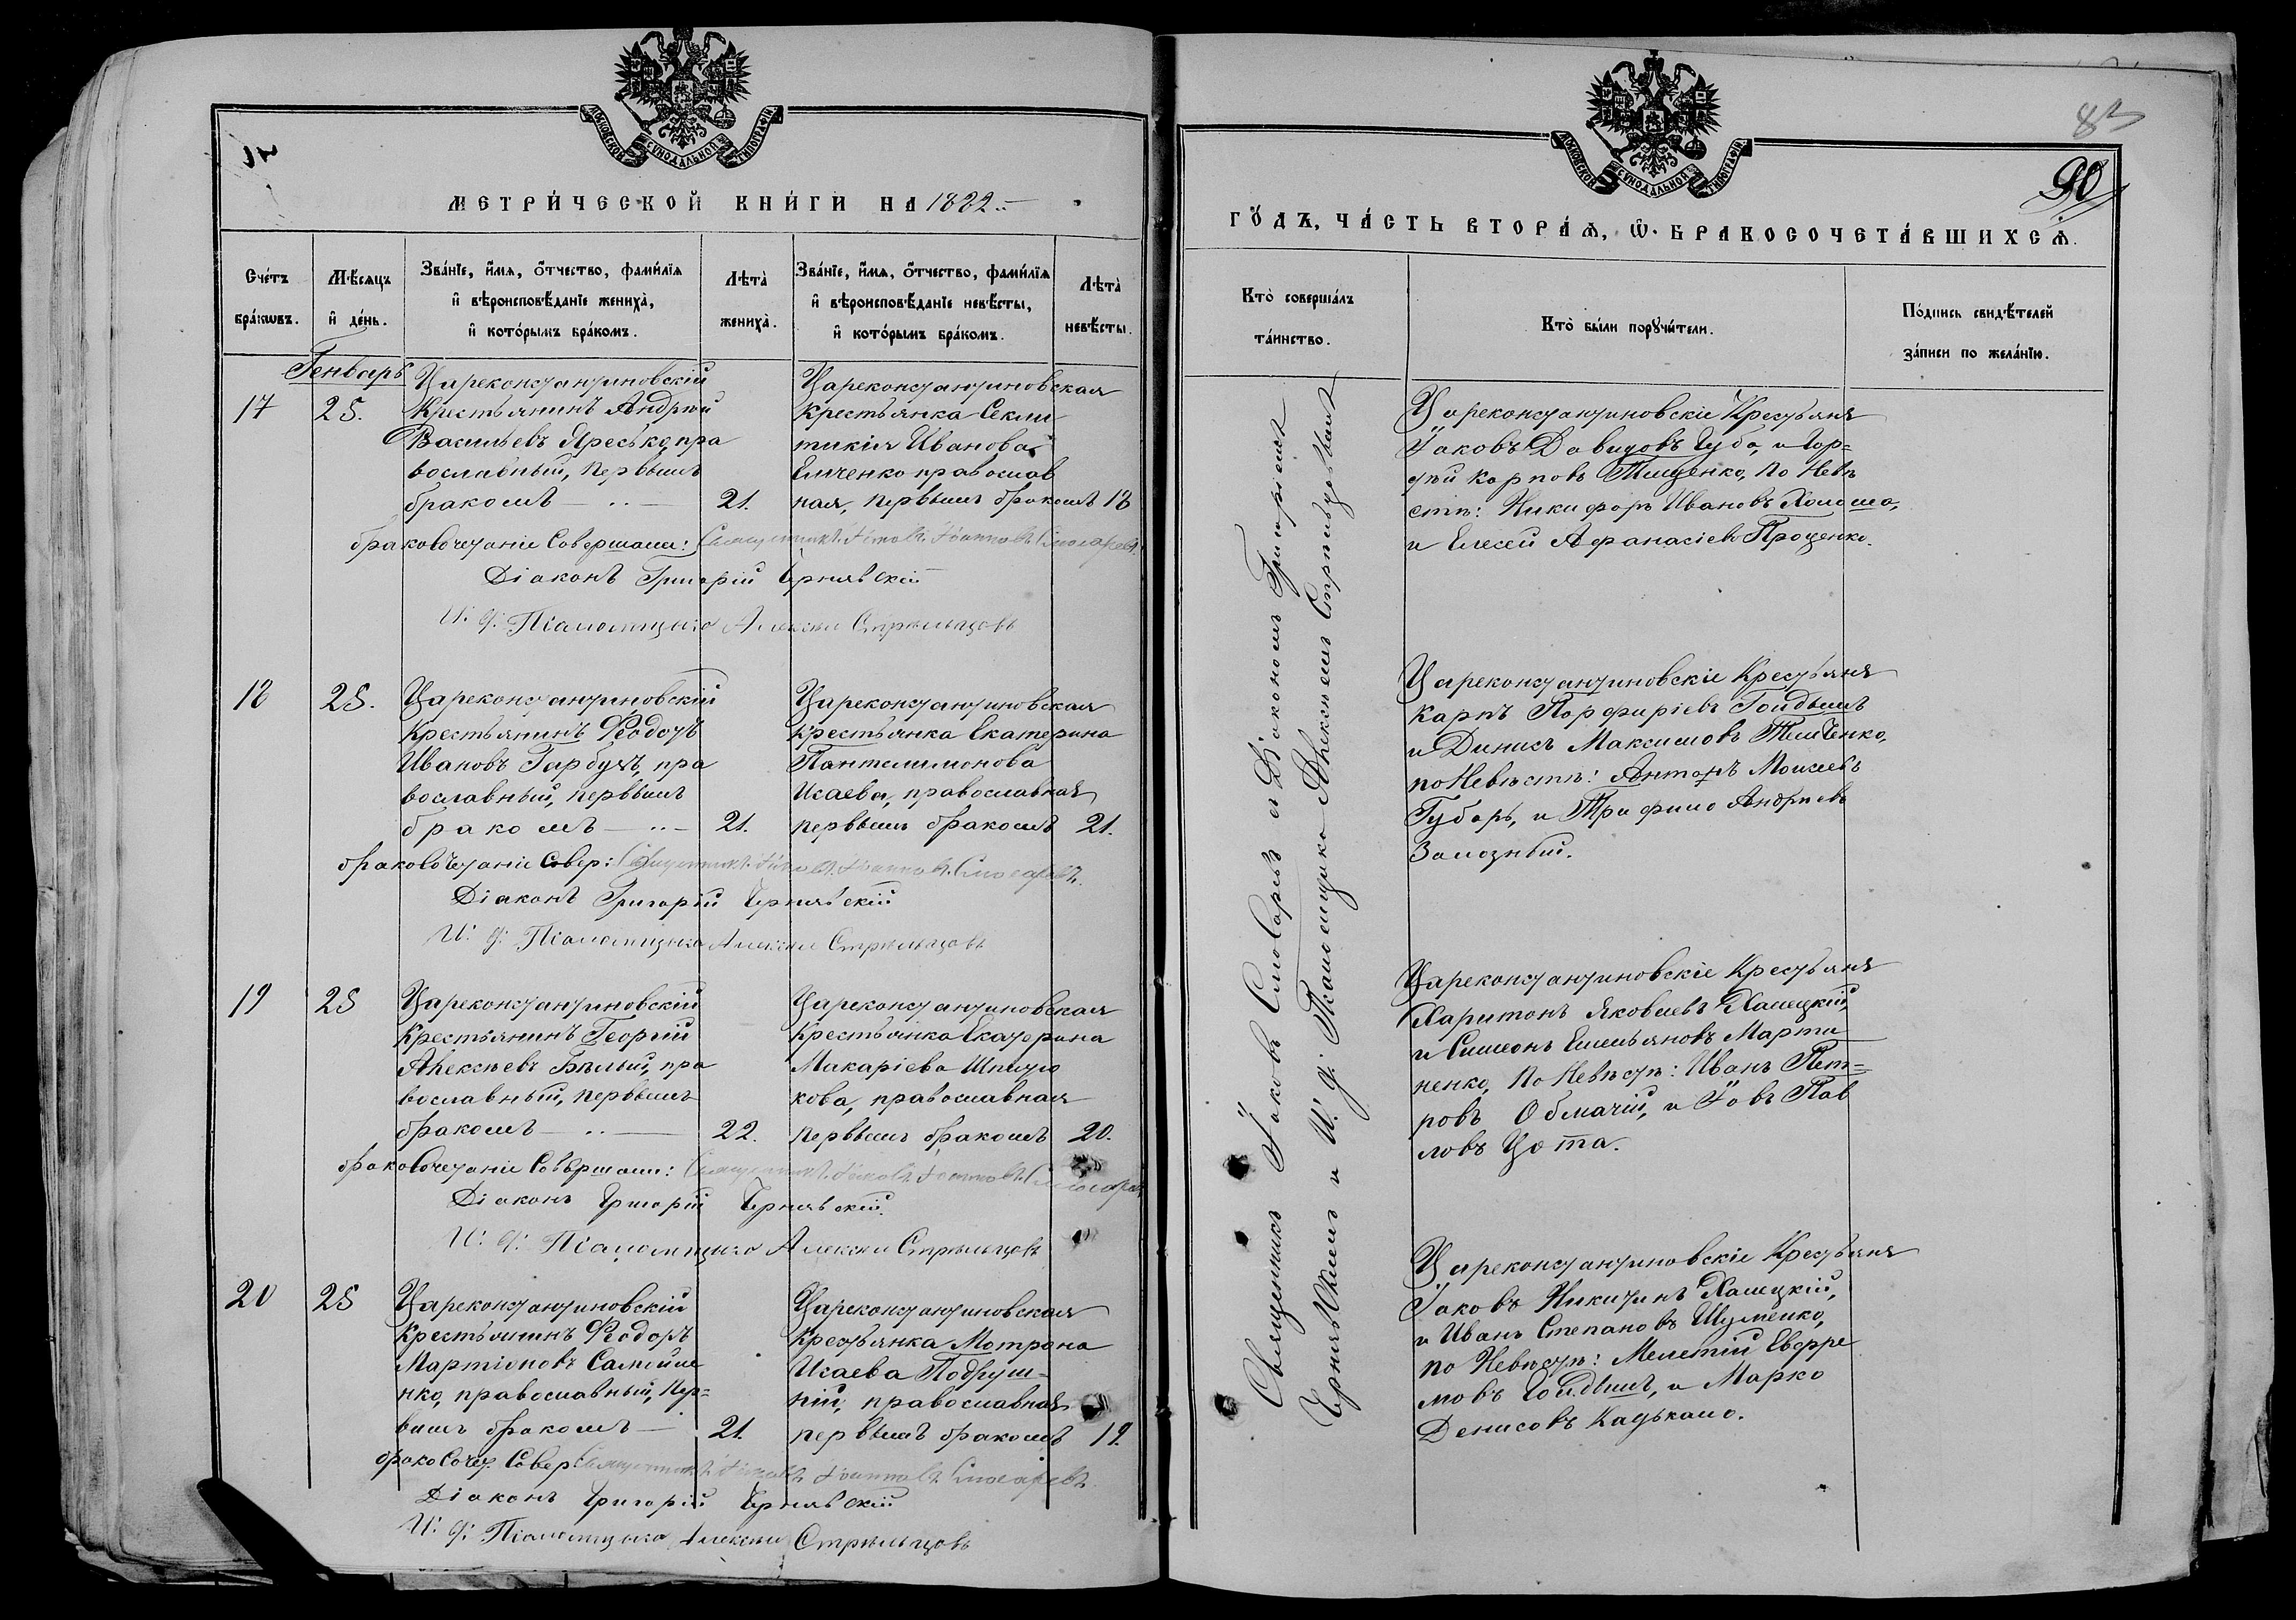 МОСКОВСКОЙ СѴНОДАЛЬНОЙ ТИПОГРАФІИ
МЕТРИ́ЧЕСКОЙ КНИ́ГИ НА 1882
Сче́тъ бра́кѡвъ.
Мѣ́сяцъ и҆ де́нь.
Зва́нїе, и҆́мя, ѻ҆́тчество, фами́лїя
и҆ вѣроисповѣ́данїе жениха̀,
и҆ кото́рымъ бра́комъ.
Лѣта̀ жениха̀.
Зва́нїе, и҆́мя, ѻ҆́тчество, фами́лїя
и҆ вѣроисповѣ́данїе невѣ́сты,
и҆ кото́рымъ бра́комъ.
Лѣта̀ невѣ́сты.
Генварь
17
25.
Цареконстантиновскій
Крестьянинъ Андрей
Васильевъ Яресько, пра
вославный, первымъ
бракомъ
21.
Цареконстантиновская
крестьянка Секли
тикія Иванова
Емченко православ
ная, первымъ бракомъ
18
бракосочетаніе Совершали: Священникъ Іаковъ Іоанновъ Слюсаревъ
Діаконъ Григорій Чернявскій
И: д: Псаломщика Алексѣй Стрѣльцовъ
18
25.
Цареконстантиновскій
Крестьянинъ Ѳеодотъ
Ивановъ Гарбузъ, пра
вославный, первымъ
бракомъ
21.
Цареконстантиновская
крестьянка Екатерина
Пантелимонова
Исаева, православная
первымъ бракомъ
21.
бракосочетаніе Совер: Священникъ Іаковъ Іоанновъ Слюсаревъ.
Діаконъ Григорій Чернявскій
И: д: Псаломщика Алексѣй Стрѣльцовъ
19
25
Цареконстантиновскій
Крестьянинъ Георгій
Алексѣевъ Бѣлый, пра
вославный, первымъ
бракомъ
22.
Цареконстантиновская
Крестьянка Екатерина
Макаріева
кова, православная
первымъ бракомъ
20.
бракосочетаніе Совершали: Священникъ Іаковъ Іоанновъ Слюсаревъ
Діаконъ Григорій Чернявскій.
И: д: Псаломщика Алексѣй Стрѣльцовъ
20
25
Цареконстантиновскій
Крестьянинъ Ѳеодоръ
Мартіоновъ Самойле
нко, православный, пер=
вымъ бракомъ
21.
Цареконстантиновская
Крестьянка Мотрона
Исаева Подруш=
ній, православная
первымъ бракомъ
19.
бракосочет. Совер: Священникъ Іаковъ Іоанновъ Слюсаревъ.
Діаконъ Григорій Чернявскій
И: д: Псаломщика Алексѣй Стрѣльцовъ
83
90
МОСКОВСКОЙ СѴНОДАЛЬНОЙ ТИПОГРАФІИ
ГО́ДЪ, ЧА́СТЬ ВТОРА́Ѧ, Ѽ БРАКОСОЧЕТА́ВШИХСѦ.
Кто̀ соверша́лъ та́инство.
Кто̀ бы́ли порꙋчи́тели.
По́дпись свидѣ́телей за́писи по жела́нїю.
Священникъ Іаковъ Слюсаревъ съ Діакономъ Григоріемъ
Чернявскимъ и И. д: Псаломщика Алексѣемъ Стрѣльцовымъ
Цареконстантиновскіе Крестьяне
Іаковъ Давидовъ Чуба, и Гор=
дѣй Карповъ Тищенко, по Невѣ
стѣ: Никифоръ Ивановъ Холоша,
и Елесей Афанасіевъ Проценко.
Цареконстантиновскіе Крестьяне
Карпъ Порфиріевъ Гойдымъ
и Динисъ Максимовъ Тимченко,
по Невѣстѣ: Антонъ Моисеевъ
Губарь, и Трифимо Андреевъ
Залозный.
Цареконстантиновскіе Крестьяне
Харитонъ Яковлевъ Халецкій,
и Симеонъ Емельяновъ Марти
ненко, по Невѣстѣ: Иванъ Пет=
ровъ Облачій, и Іовъ Пав
ловъ Цота.
Цареконстантиновскіе Крестьяне
Іаковъ Никитинъ Халецкій,
и Иванъ Степановъ Шуменко,
по Невѣстѣ: Мелетій Евфре
мовъ Гойдымъ, и Марко
Денисовъ Кацькало.